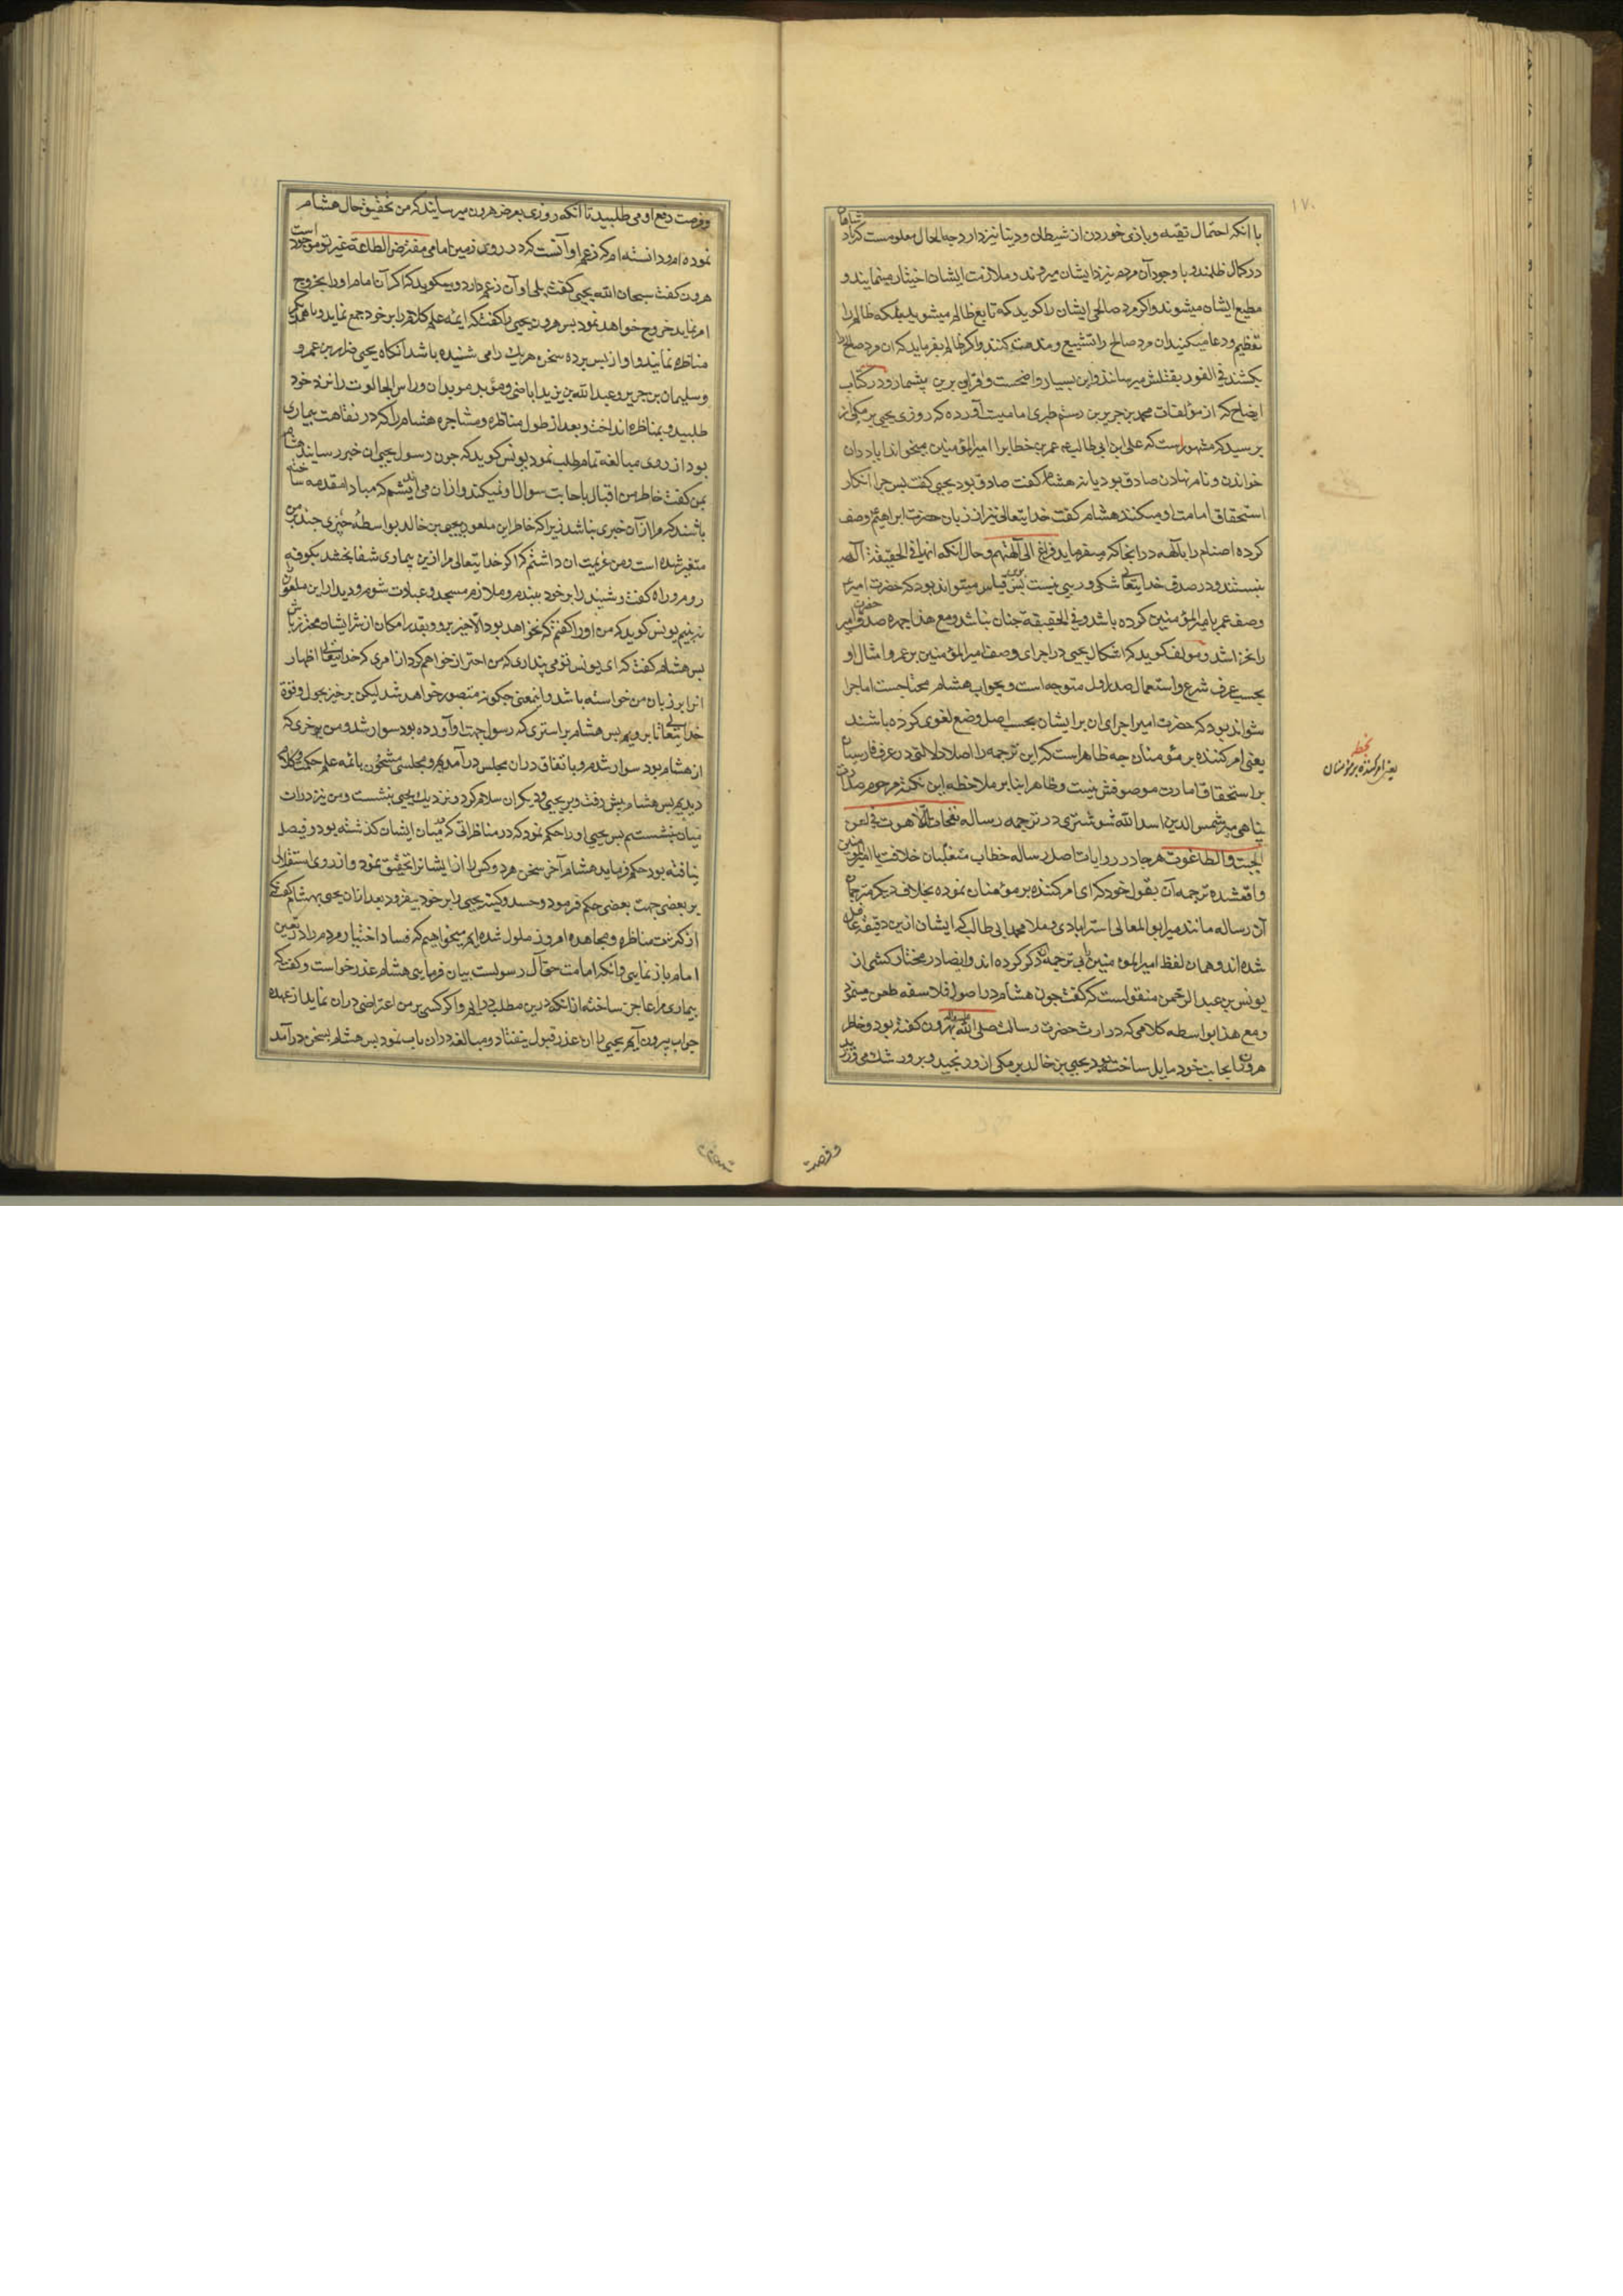 ١٧٠
با آنکه احتمال تقیه و بازی خوردن از شیطان و دنیا نیز دارد چه الحال معلومست که پادشاهان
در کمال ظلمند و با وجود آن مردم نیز نزد ایشان میروند و ملازمت ایشان اختیار مینمایند و
مطیع ایشان میشوند و اگر مرد صالحی ایشان را گوید که تابع ظالم میشوید بلکه ظالم را
تعظیم و دعا میکنید آن مرد صالح را تشنیع و مذمت کنند و اگر ظالم بفرماید که آن مرد صالح را
بکشند فی الفور بقتلش میرسانند و این بسیار واضحست و قراین برین بیشمار و در کتاب
ایضاح که از مؤلفات محمد بن جریر بن رستم طبری امامیست آورده که روزی یحیی برمکی از
پرسید که مشهور است که علی ابن ابی طالب ع عمر بن خطاب را امیر المؤمنین میخواند آیا در آن
خواندن و نام نهادن صادق بود یا نه هشام گفت صادق بود یحیی گفت پس چرا انکار
استحقاق امامت او میکنند هشام گفت خدایتعالی نیز از زبان حضرت ابراهیم وصف
کرده اصنام را بآلهه در آنجا که میفرماید فراغ الی آلهتهم و حال آنکه آنها فی الحقیقة آلهه
نیستند و در صدق خدایتعالی شکی و ریبی نیست پس برین قیاس میتواند بود که حضرت امیر ع
وصف عمر بامیر المؤمنین کرده باشد و فی الحقیقة چنان نباشد و مع هذا چهره صدق حضرت امیر
را نخراشد و مؤلف گوید که اشکال یحیی در اجرای وصف امیر المؤمنین بر عمر و امثال او
بحسب عرف شرع و استعمال صدر اول متوجه است و بجواب هشام محتاجست اما چرا
نتواند بود که حضرت امیر اجرای آن بر ایشان بحسب اصل وضع لغوی کرده باشند
یعنی امر کننده بر مؤمنان چه ظاهر است که این ترجمه را اصلا دلالتی در عرف فارسیان
بر استحقاق امارت موصوفش نیست و ظاهرا بنابر ملاحظه این نکته مرحوم صدارت
پناهی میر شمس الدین اسد الله شوشتری در ترجمه رساله نفحات اللاهوت فی لعن
الجبت والطاغوت هر جا در روایات اصل رساله خطاب متغلبان خلافت یا امیر المؤمنین
واقعشده ترجمه آن بقول خود که ای امر کننده بر مؤمنان نموده بخلاف دیگر مترجمان
آن رساله مانند میر ابو المعالی استرابادی و ملا محمد ابی طالب که ایشان ازین دقیقه غافل
شده اند و همان لفظ امیر المؤمنین را بی ترجمه آن ذکر کرده اند و ایضا در مختار کشی از
یونس بن عبد الرحمن منقولست که گفت چون هشام در اصول فلاسفه طعن مینمود
و مع هذا بواسطه کلامی که در ارث حضرت رسالت صلی الله علیه و آله بهرون گفته بود و خاطر
هرون را بجانب خود مایل ساخته بود یحیی بن خالد برمکی ازو رنجید و برو رشک می ورزید
و فرصت
بخطه
یعنی امر کننده بر مؤمنان
و فرصت دفع او می طلبید تا آنکه روزی بعرض هرون میرساند که من تحقیق حال هشام
نموده ام و دانسته ام که زعم او آنست که در روی زمین امامی مفترض الطاعة غیر تو موجود است
هرون گفت سبحان الله یحیی گفت بلی او آن زعم دارد و میگوید که اگر آن امام او را بخروج
امر نماید خروج خواهد نمود پس هرون یحیی را گفت که ائمه علم کلام را بر خود جمع نماید و با همدیگر
مناظره نمایند و او از پس پرده سخن هر یک را می شنیده باشد آنگاه یحیی ضرار بن عمرو
و سلیمان بن جریر و عبد الله بن یزید اباضی و مؤبد موبدان و راس الجالوت را نزد خود
طلبید و بمناظره انداخت و بعد از طول مناظره و مشاجره هشام را که در نقاهت بیماری
بود از روی مبالغه تمام طلب نمود یونس گوید که چون رسول یحیی آن خبر رسانید هشام
بمن گفت خاطر من اقبال باجابت سوال او نمیکند و از آن می اندیشم که مبادا مقدمه ساخته
باشند که مرا از آن خبری نباشد زیرا که خاطر این ملعون یحیی بن خالد بواسطه چیزی چند بر من
متغیر شده است و من عزیمت آن داشتم که اگر خدایتعالی مرا ازین بیماری شفا بخشد بکوفه
روم و راه گفت و شنید را بر خود ببندم و ملازم مسجد و عبادت شوم و دیدار این ملعون
نبینم یونس گوید که من او را گفتم که نخواهد بود الا خیر برو و بقدر امکان از شر ایشان محترز باش
پس هشام گفت که ای یونس تو می پنداری که من احتراز خواهم کرد از امری که خدایتعالی اظهار
آنرا بر زبان من خواسته باشد و اینمعنی چگونه متصور خواهد شد لیکن برخیز بحول و قوة
خدایتعالی تا برویم پس هشام بر استری که رسول جهت او آورده بود سوار شد و من بر خری که
از هشام بود سوار شدم و باتفاق در آن مجلس درآمدیم و مجلسی مشحون بائمه علم حکمت و کلام
دیدیم پس هشام پیش رفت و بر یحیی و دیگران سلام کرد و نزدیک یحیی بنشست و من نیز در آن
میان بنشستم پس یحیی او را حکم نمود که در مناظراتی که در میان ایشان گذشته بود و فیصل
نیافته بود حکم فرماید هشام آخر سخن هر دو کس را از ایشان را تحقیق نمود و از روی استقلال
بر بعضی جهت بعضی حکم فرمود و حسد و کینه یحیی را بر خود بیفزود بعد از آن یحیی بهشام گفت که
از کثرت مناظره و مجاهده امروز ملول شده ایم میخواهیم که فساد اختیار مردم را در تعیین
امام باز نمایی و آنکه امامت حق آل رسولست بیان فرمایی هشام عذر خواست و گفت که
بیماری مرا عاجز ساخته از آنکه درین مطلب درآیم و اگر کسی بر من اعتراضی در آن نماید از عهده
جواب بیرون آیم یحیی را آن عذر قبول نیفتاد و مبالغه در آن باب نمود پس هشام بسخن درآمد